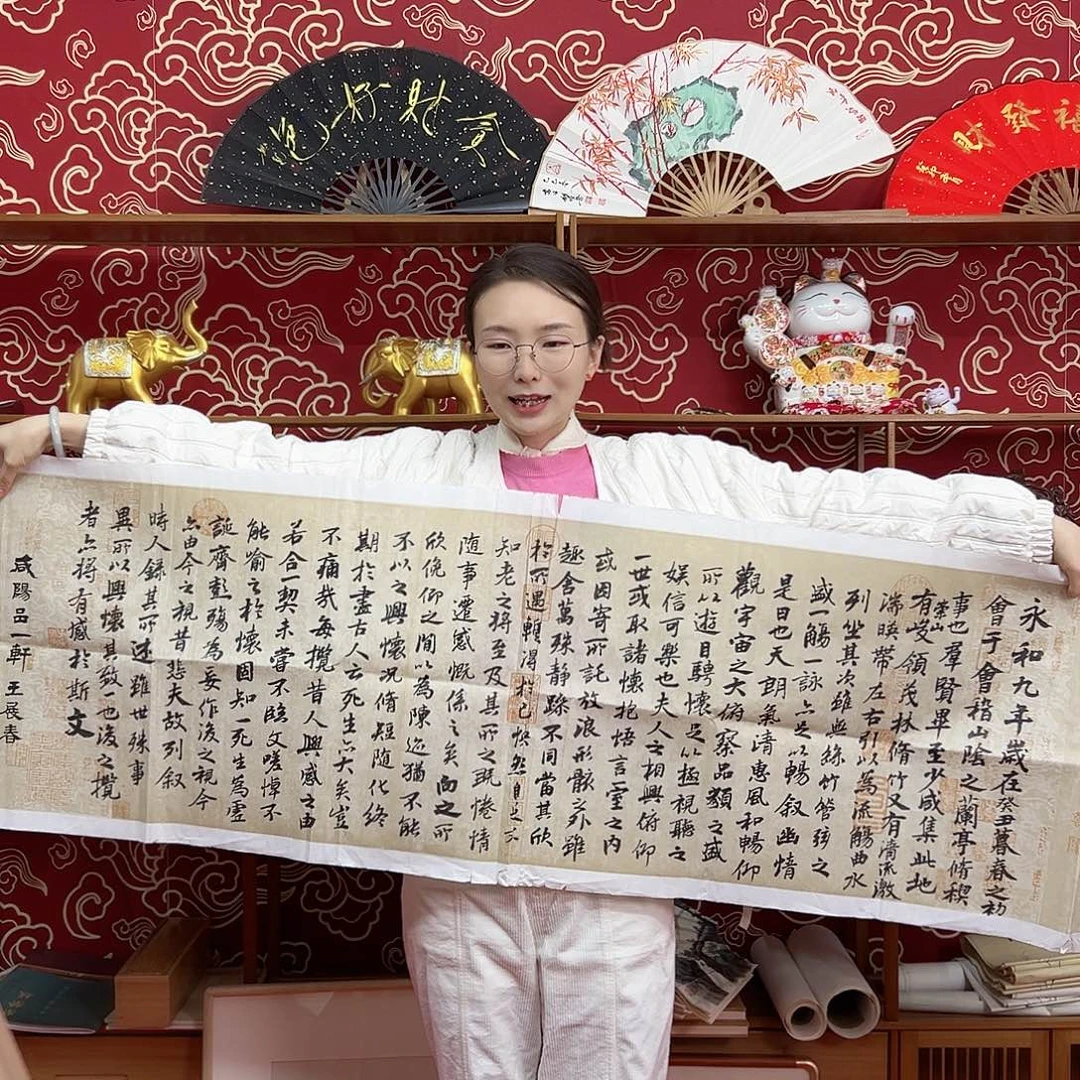 永和九年歲在癸丑暮春之初
會于會稽山陰之蘭亭脩稧
事也羣賢畢至少咸集此地
有崇山峻領茂林脩竹又有清流激
湍暎帶左右引以為流觴曲水
列坐其次雖無絲竹管弦之
盛一觴一詠亦足以暢叙幽情
是日也天朗氣清惠風和暢仰
觀宇宙之大俯察品類之盛
所以遊目騁懷足以極視聽之
娛信可樂也夫人之相與俯仰
一世或取諸懷抱悟言室之內
或因寄所託放浪形骸之外雖
趣舍萬殊靜躁不同當其欣
於所遇輙得於己怏然自足不
知老之將至及其所之既惓情
隨事遷感慨係之矣向之所
欣俛仰之間以為陳迹猶不能
不以之興懷況脩短隨化終
期於盡古人云死生亦大矣豈
不痛哉每攬昔人興感之由
若合一契未嘗不臨文嗟悼不
能喻之於懷固知一死生為虛
誕齊彭殤為妄作後之視今
亦由今之視昔悲夫故列叙
時人錄其所述雖世殊事
異所以興懷其致一也後之攬
者亦將有感於斯文
咸陽品一軒 王展春
發財